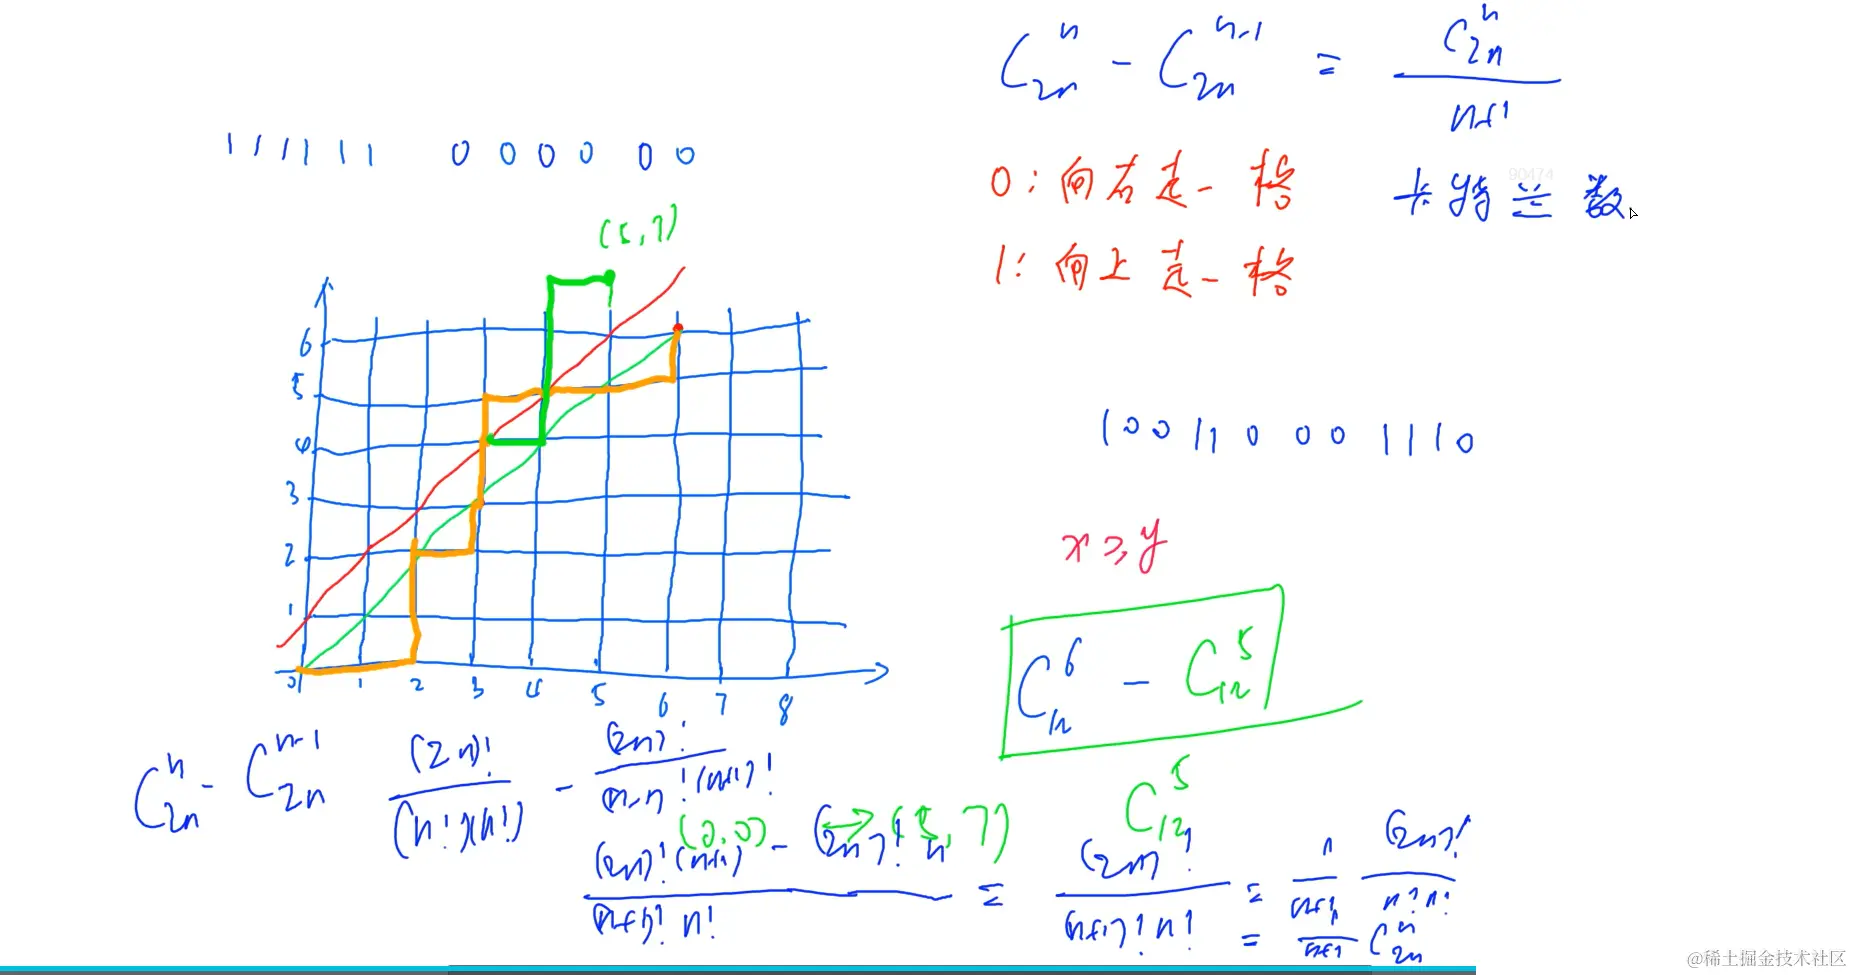 C_{2n}^{n} - C_{2n}^{n-1} = \frac{C_{2n}^{n}}{n+1}
1 1 1 1 1 1 0 0 0 0 0 0
0: 向右走一格
卡特兰数
90474
1: 向上走一格
(5,7)
6
5
4
3
2
1
0 1 2 3 4 5 6 7 8
1 0 0 1 1 0 0 0 1 1 1 0
x ≥ y
C_{12}^{6} - C_{12}^{5}
C_{2n}^{n} - C_{2n}^{n-1} \frac{(2n)!}{(n!)(n!)} - \frac{(2n)!}{(n-1)!(n+1)!}
C_{12}^{5}
(0,0) ↔ (5,7)
\frac{(2n)!(n+1) - (2n)! n}{(n+1)! n!} = \frac{(2n)!}{(n+1)! n!} = \frac{1}{n+1} \frac{(2n)!}{n! n!}
= \frac{1}{n+1} C_{2n}^{n}
@稀土掘金技术社区